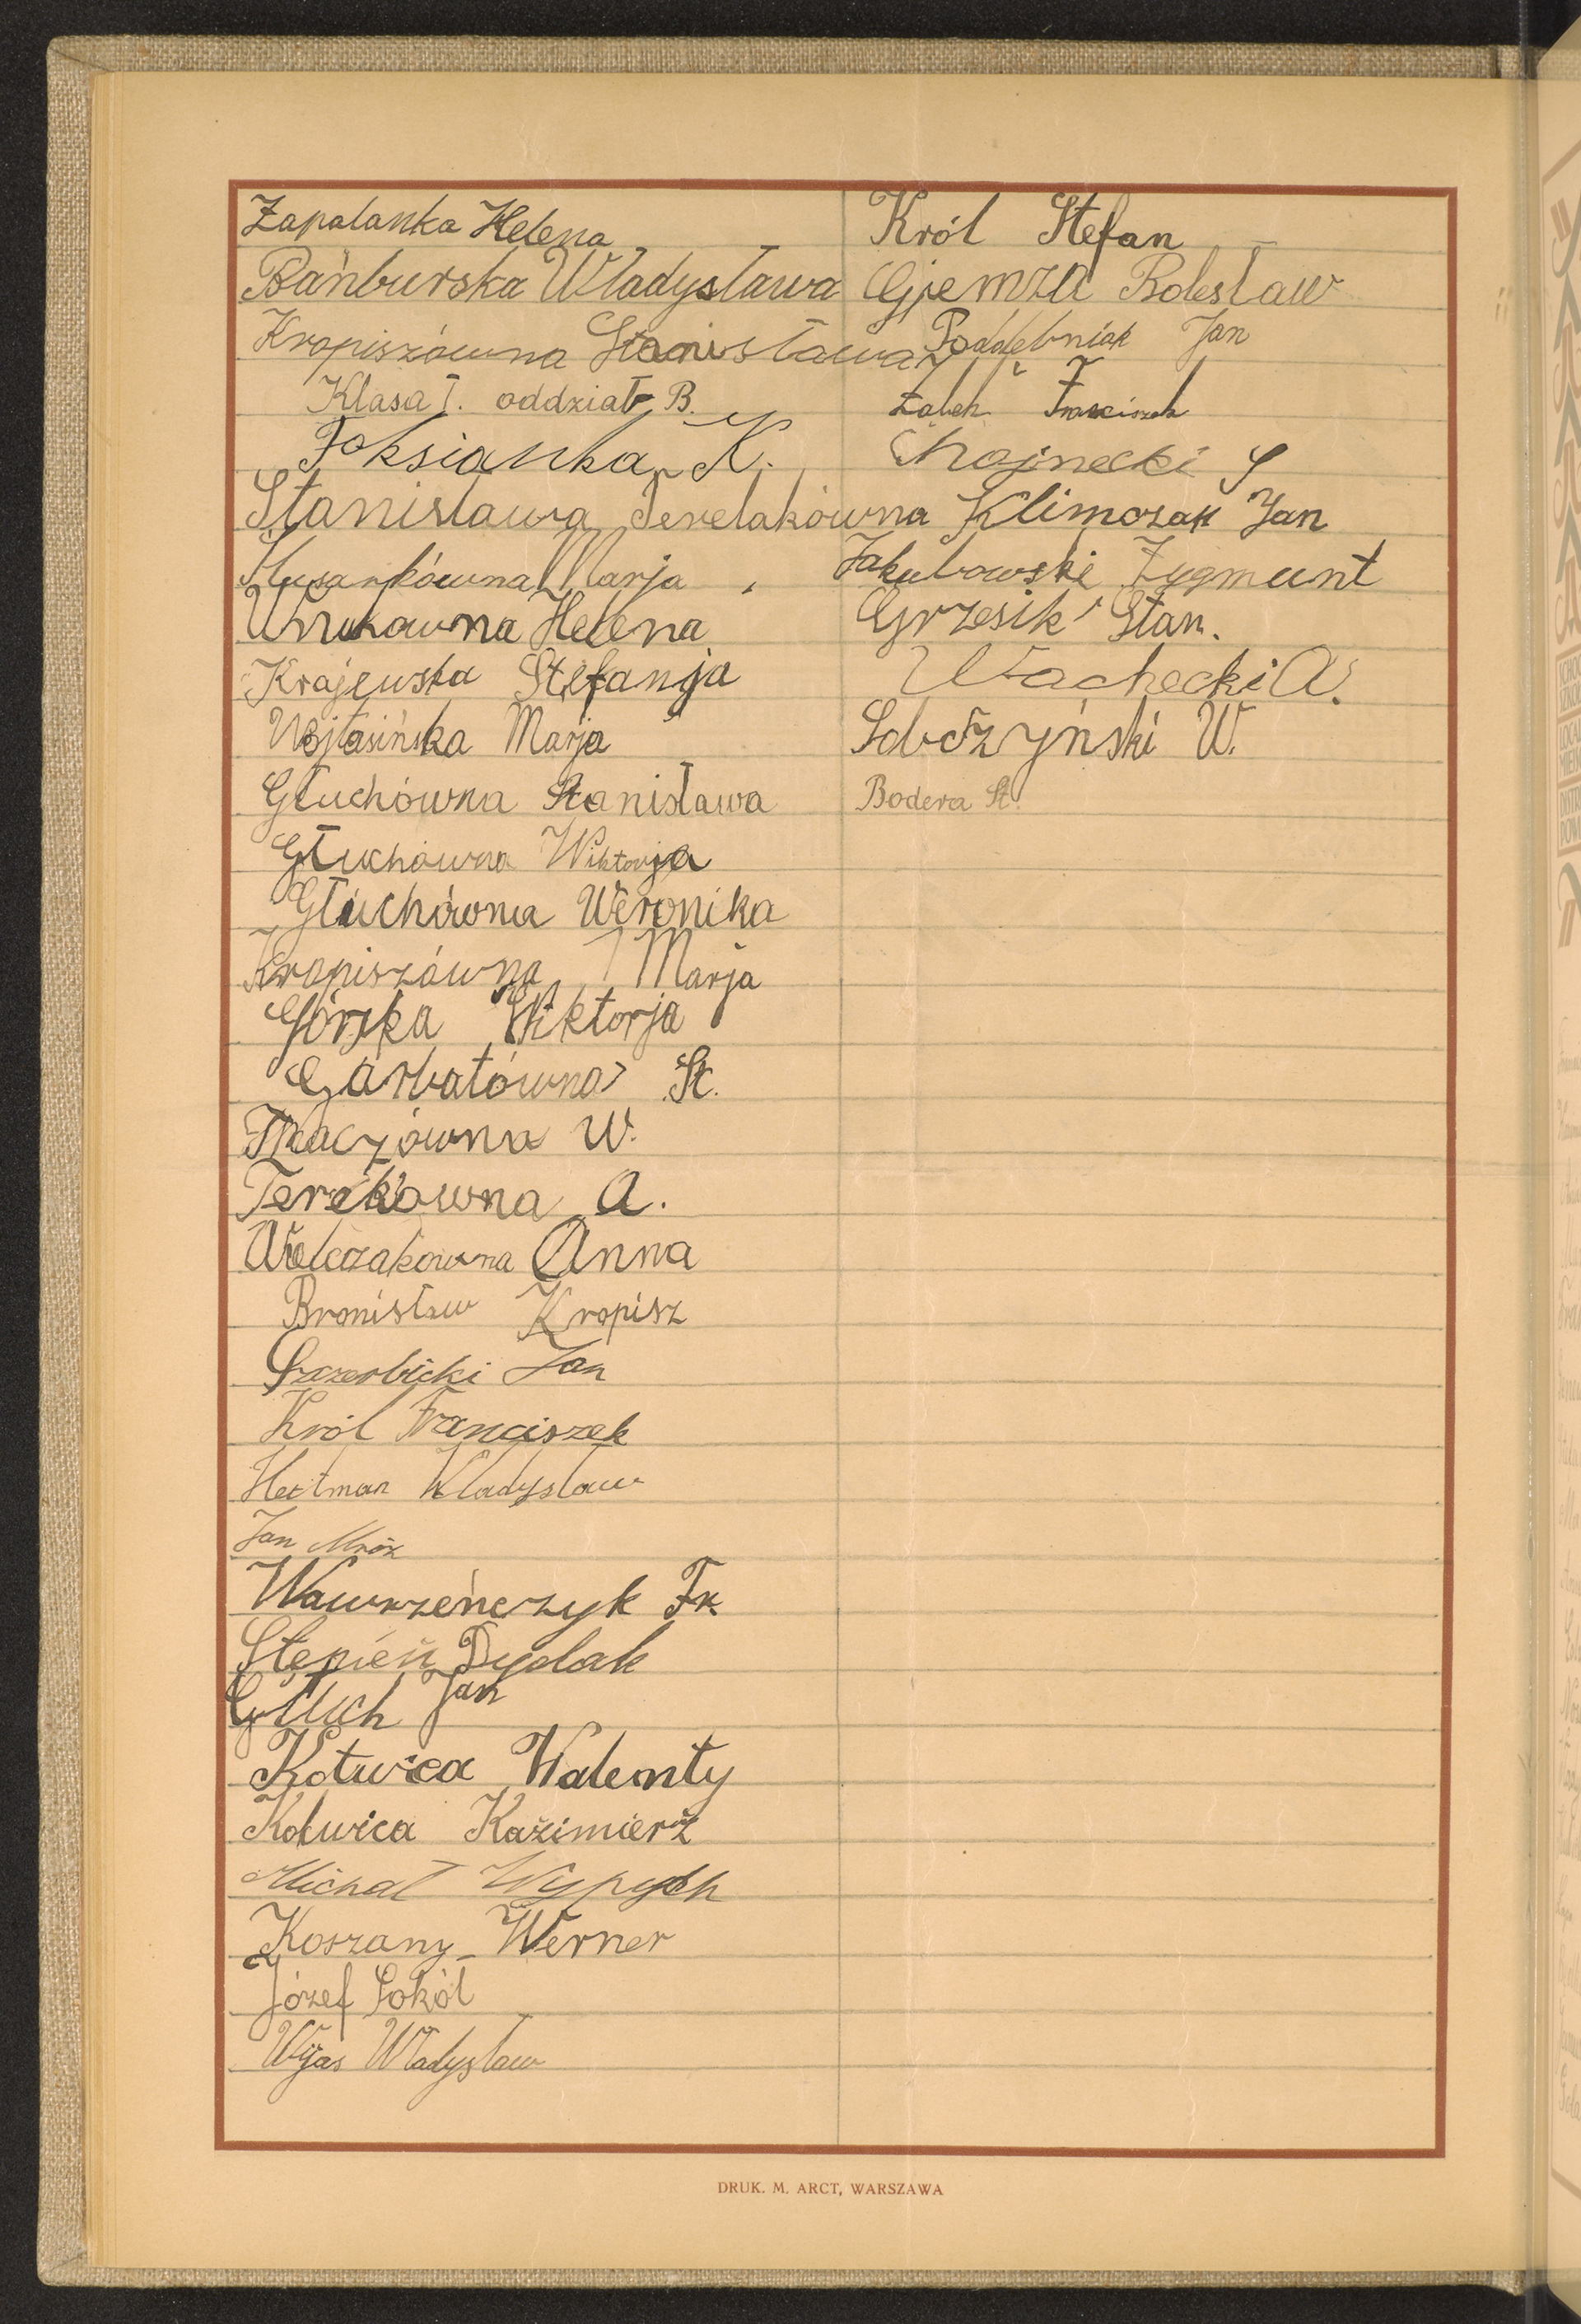 Zapalanka Helena
Bańburska Władysława
Kropiszówna Stanisława
Klasa I. oddział B.
Foksianka K.
Stanisława Terelakówna
Husarkówna Marja
Wnukowna Helena
Krajewska Stefanja
Wojtasińska Marja
Głuchówna Stanisława
Głuchówna Wiktorja
Głuchówna Weronika
Kropiszówna Marja
Górska Wiktorja
Garbatówna St.
Tkaczówna W.
Terekówna A.
Walczakowna Anna
Bronisław Kropisz
Szczerbicki Jan
Król Franciszek
Hetman Władysław
Jan Mróz
Wawrzeńczyk Fr.
Stępień Dydak
Głuch Jan
Kotwica Walenty
Kotwica Kazimierz
Michał Wypych
Koszany Werner
Józef Sokół
Wijas Władysław
Król Stefan
Gjemza Bolesław
Poddębniak Jan
Żabek Franciszek
Chojnecki S
Klimczak Jan
Jakubowski Zygmunt
Grzesik Stan.
Wachecki A.
Sobczyński W.
Bodera St.
DRUK. M. ARCT, WARSZAWA